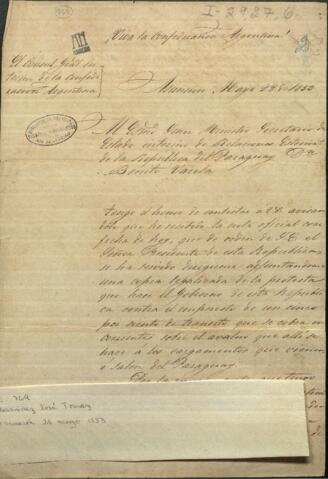 I-29,27,6
¡Viva la Confederacion Argentina!
El Consul Gral. in-
terino de la Confede-
racion Argentina
Asuncion, Mayo 28 de 1853
Al Exmo. Señor Ministro Secretario de
Estado interino de Relaciones Exteriores
de la Republica del Paraguay Dn.
Benito Varela
Tengo el honor de contestar a V.E. avisan-
dole que he recibido la nota oficial con
fecha de hoy, que de orden de S.E. el
Señor Presidente de esta Republica
se ha servido dirigirme adjuntandome
una copia legalizada de la protesta
que hace el Gobierno de esta Republi-
ca contra el impuesto de un cinco
por ciento de transito que se cobra en
Corrientes sobre el avaluo que alli se
hace a los cargamentos que vienen
o salen del Paraguay
769
José Tomás
Asunción 28 mayo 1853